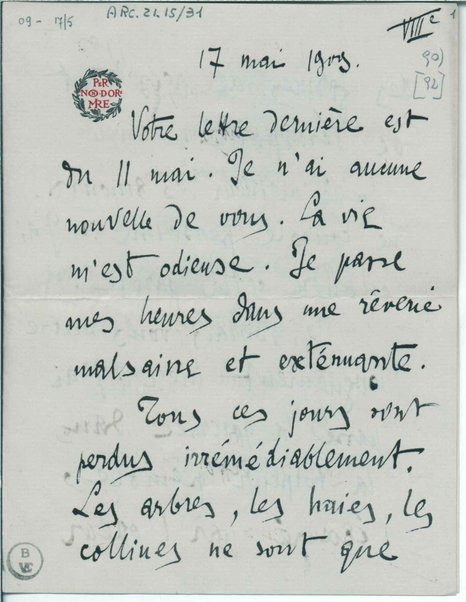 09 - 17/5
ARC. 21. 15/31
VIII e
1
90)
[92]
17 mai 1909.
PER
NON DOR
MIRE
Votre lettre dernière est
du 11 mai. Je n'ai aucune
nouvelle de vous. La vie
m'est odieuse. Je passe
mes heures dans une rêverie
malsaine et exténuante.
Tous ces jours sont
perdus irrémédiablement.
Les arbres, les haies, les
collines ne sont que
B